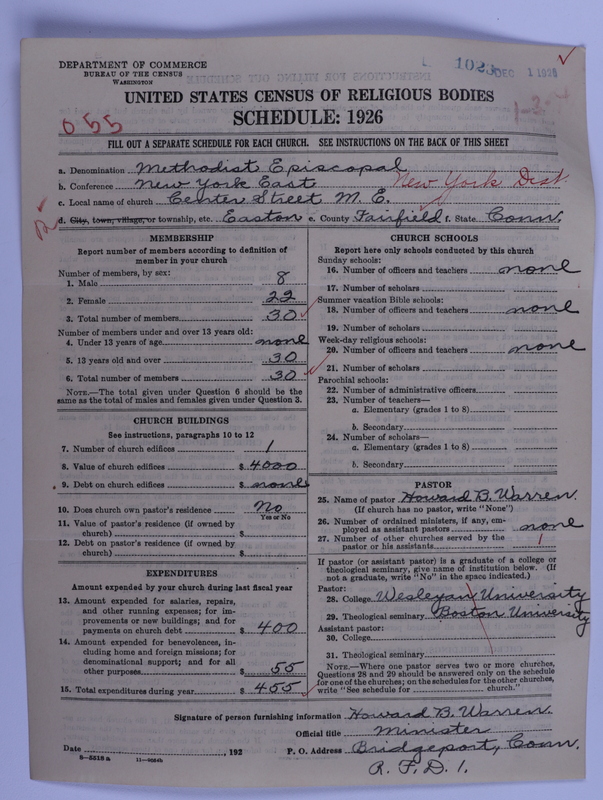 1023 DEC 1 1926
DEPARTMENT OF COMMERCE
BUREAU OF THE CENSUS
WASHINGTON
UNITED STATES CENSUS OF RELIGIOUS BODIES
SCHEDULE: 1926
055
FILL OUT A SEPARATE SCHEDULE FOR EACH CHURCH. SEE INSTRUCTIONS ON THE BACK OF THIS SHEET
a. Denomination Methodist Episcopal
b. Conference New York East New York Dist.
c. Local name of church Center Street M. E.
d. City, town, village, or township, etc. Easton e. County Fairfield f. State Conn.
MEMBERSHIP
Report number of members according to definition of
member in your church
Number of members, by sex:
1. Male 8
2. Female 22
3. Total number of members 30
Number of members under and over 13 years old:
4. Under 13 years of age none
5. 13 years old and over 30
6. Total number of members 30
NOTE.—The total given under Question 6 should be the
same as the total of males and females given under Question 3.
CHURCH BUILDINGS
See instructions, paragraphs 10 to 12
7. Number of church edifices 1
8. Value of church edifices $ 4000
9. Debt on church edifices $ none
10. Does church own pastor's residence No
Yes or No
11. Value of pastor's residence (if owned by
church) $
12. Debt on pastor's residence (if owned by
church) $
EXPENDITURES
Amount expended by your church during last fiscal year
13. Amount expended for salaries, repairs,
and other running expenses; for im-
provements or new buildings; and for
payments on church debt $ 400
14. Amount expended for benevolences, in-
cluding home and foreign missions; for
denominational support; and for all
other purposes $ 55
15. Total expenditures during year $ 455
CHURCH SCHOOLS
Report here only schools conducted by this church
Sunday schools:
16. Number of officers and teachers none
17. Number of scholars
Summer vacation Bible schools:
18. Number of officers and teachers none
19. Number of scholars
Week-day religious schools:
20. Number of officers and teachers none
21. Number of scholars
Parochial schools:
22. Number of administrative officers
23. Number of teachers—
a. Elementary (grades 1 to 8)
b. Secondary
24. Number of scholars—
a. Elementary (grades 1 to 8)
b. Secondary
PASTOR
25. Name of pastor Howard B. Warren.
(If church has no pastor, write "None")
26. Number of ordained ministers, if any, em-
ployed as assistant pastors none
27. Number of other churches served by the
pastor or his assistants 1
If pastor (or assistant pastor) is a graduate of a college or
theological seminary, give name of institution below. (If
not a graduate, write "No" in the space indicated.)
Pastor:
28. College Wesleyan University
29. Theological seminary Boston University
Assistant pastor:
30. College
31. Theological seminary
NOTE.—Where one pastor serves two or more churches,
Questions 28 and 29 should be answered only on the schedule
for one of the churches; on the schedules for the other churches,
write "See schedule for church."
Signature of person furnishing information Howard B. Warren.
Official title Minister
Date , 192 P. O. Address Bridgeport, Conn.
R. F. D. 1.
8—5518a